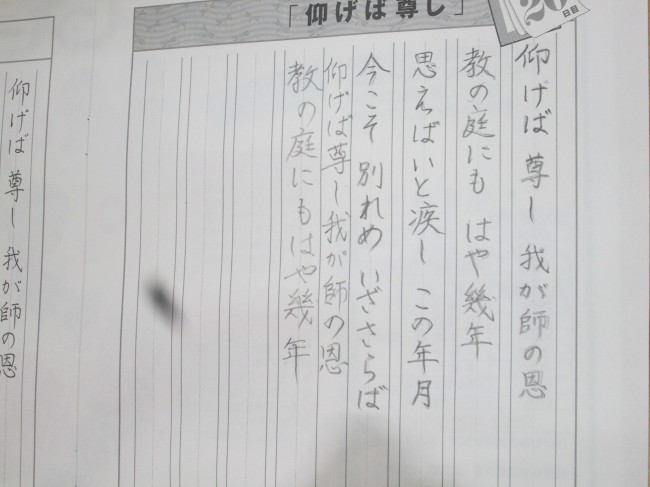 「仰げば尊し」
20日目
仰げば 尊し 我が師の恩
教の庭にも はや幾年
思えばいと疾し この年月
今こそ 別れめ いざさらば
仰げば尊し我が師の恩
教の庭にもはや幾年
仰げば 尊し 我が師の恩